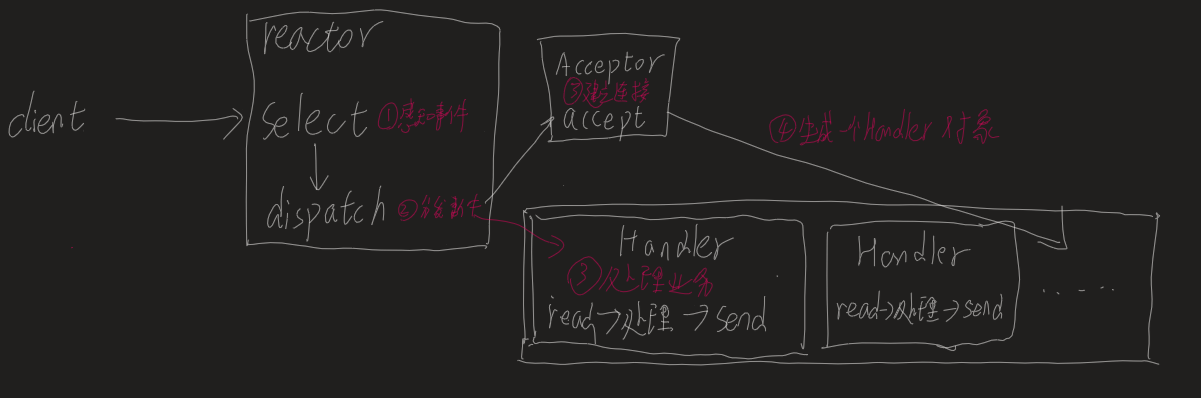 client
reactor
select ①感知事件
dispatch ②分发事件
Acceptor
③建立连接
accept
④生成个Handler对象
Handler
③处理业务
read→处理→send
Handler
read→处理→send
......